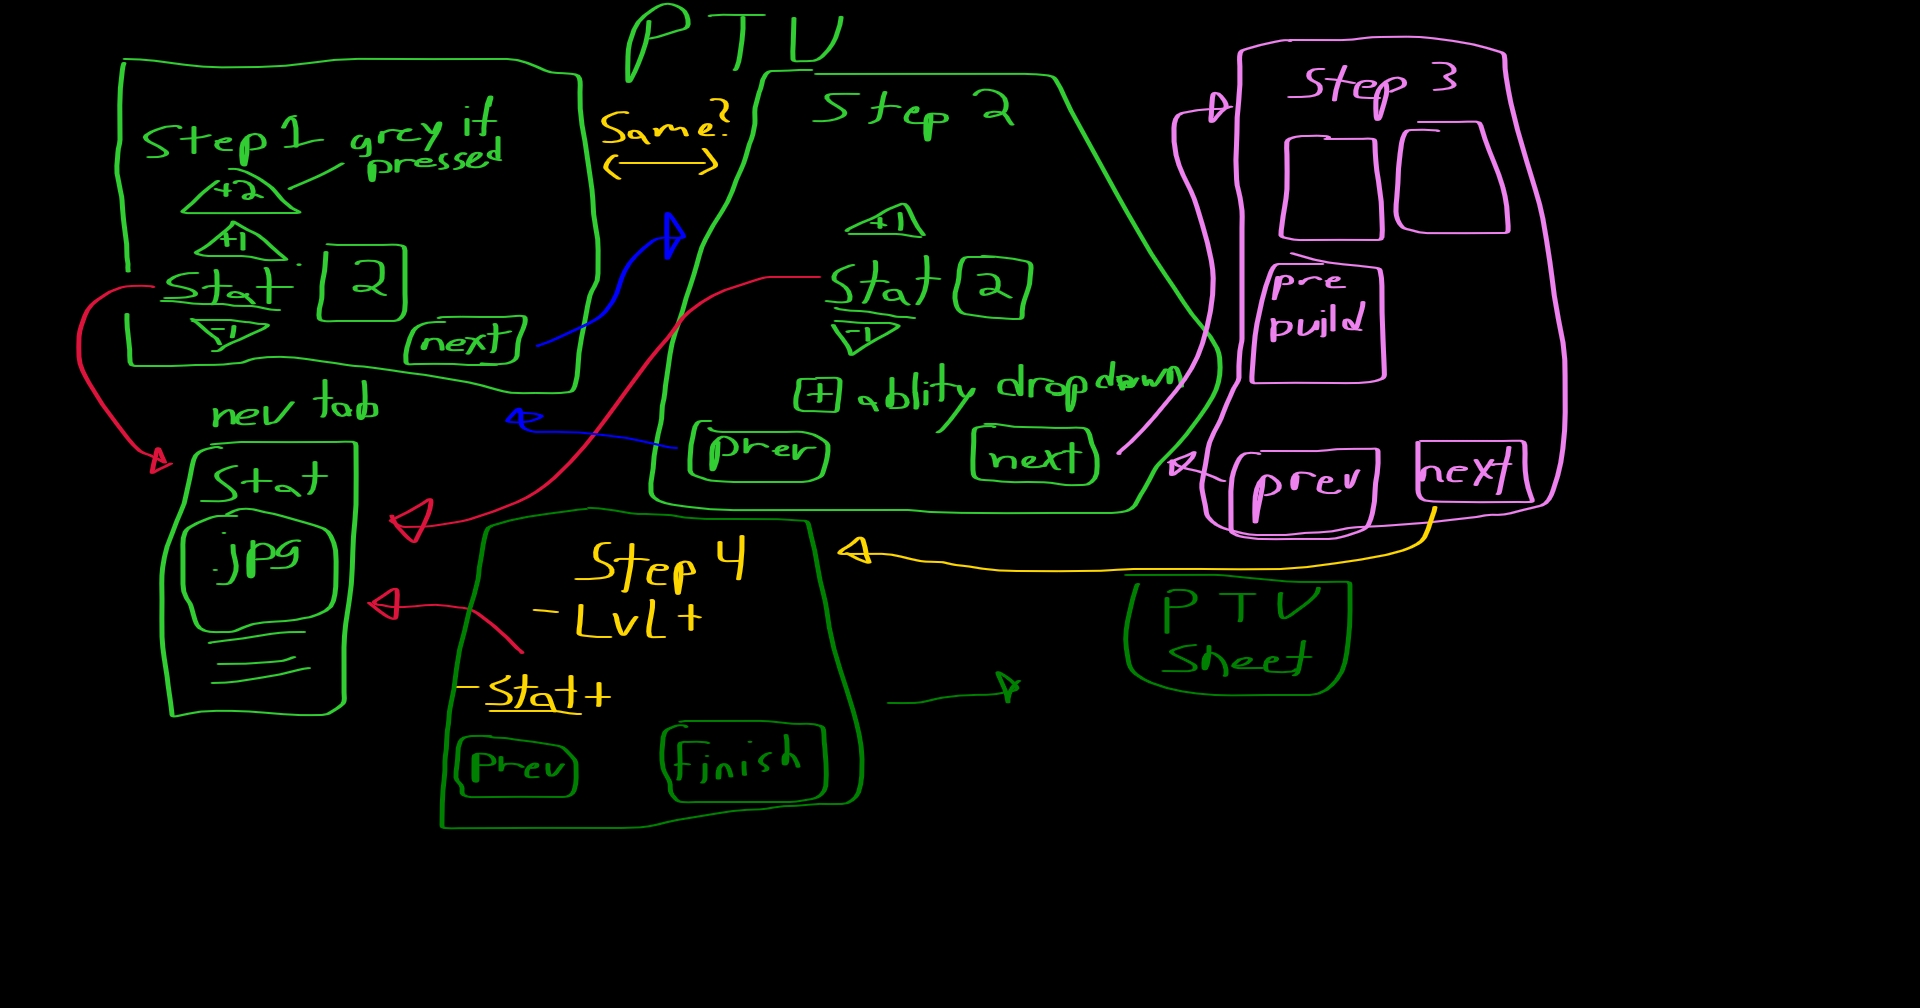 PTU
Step 1 grey if
pressed
+2
+1
Stat 2
-1
next
Same?
Step 2
+1
Stat 2
-1
+ ablity dropdown
prev
next
Step 3
pre
build
prev
next
new tab
Stat
.jpg
Step 4
- LvL +
- Stat +
prev
finish
PTU
Sheet